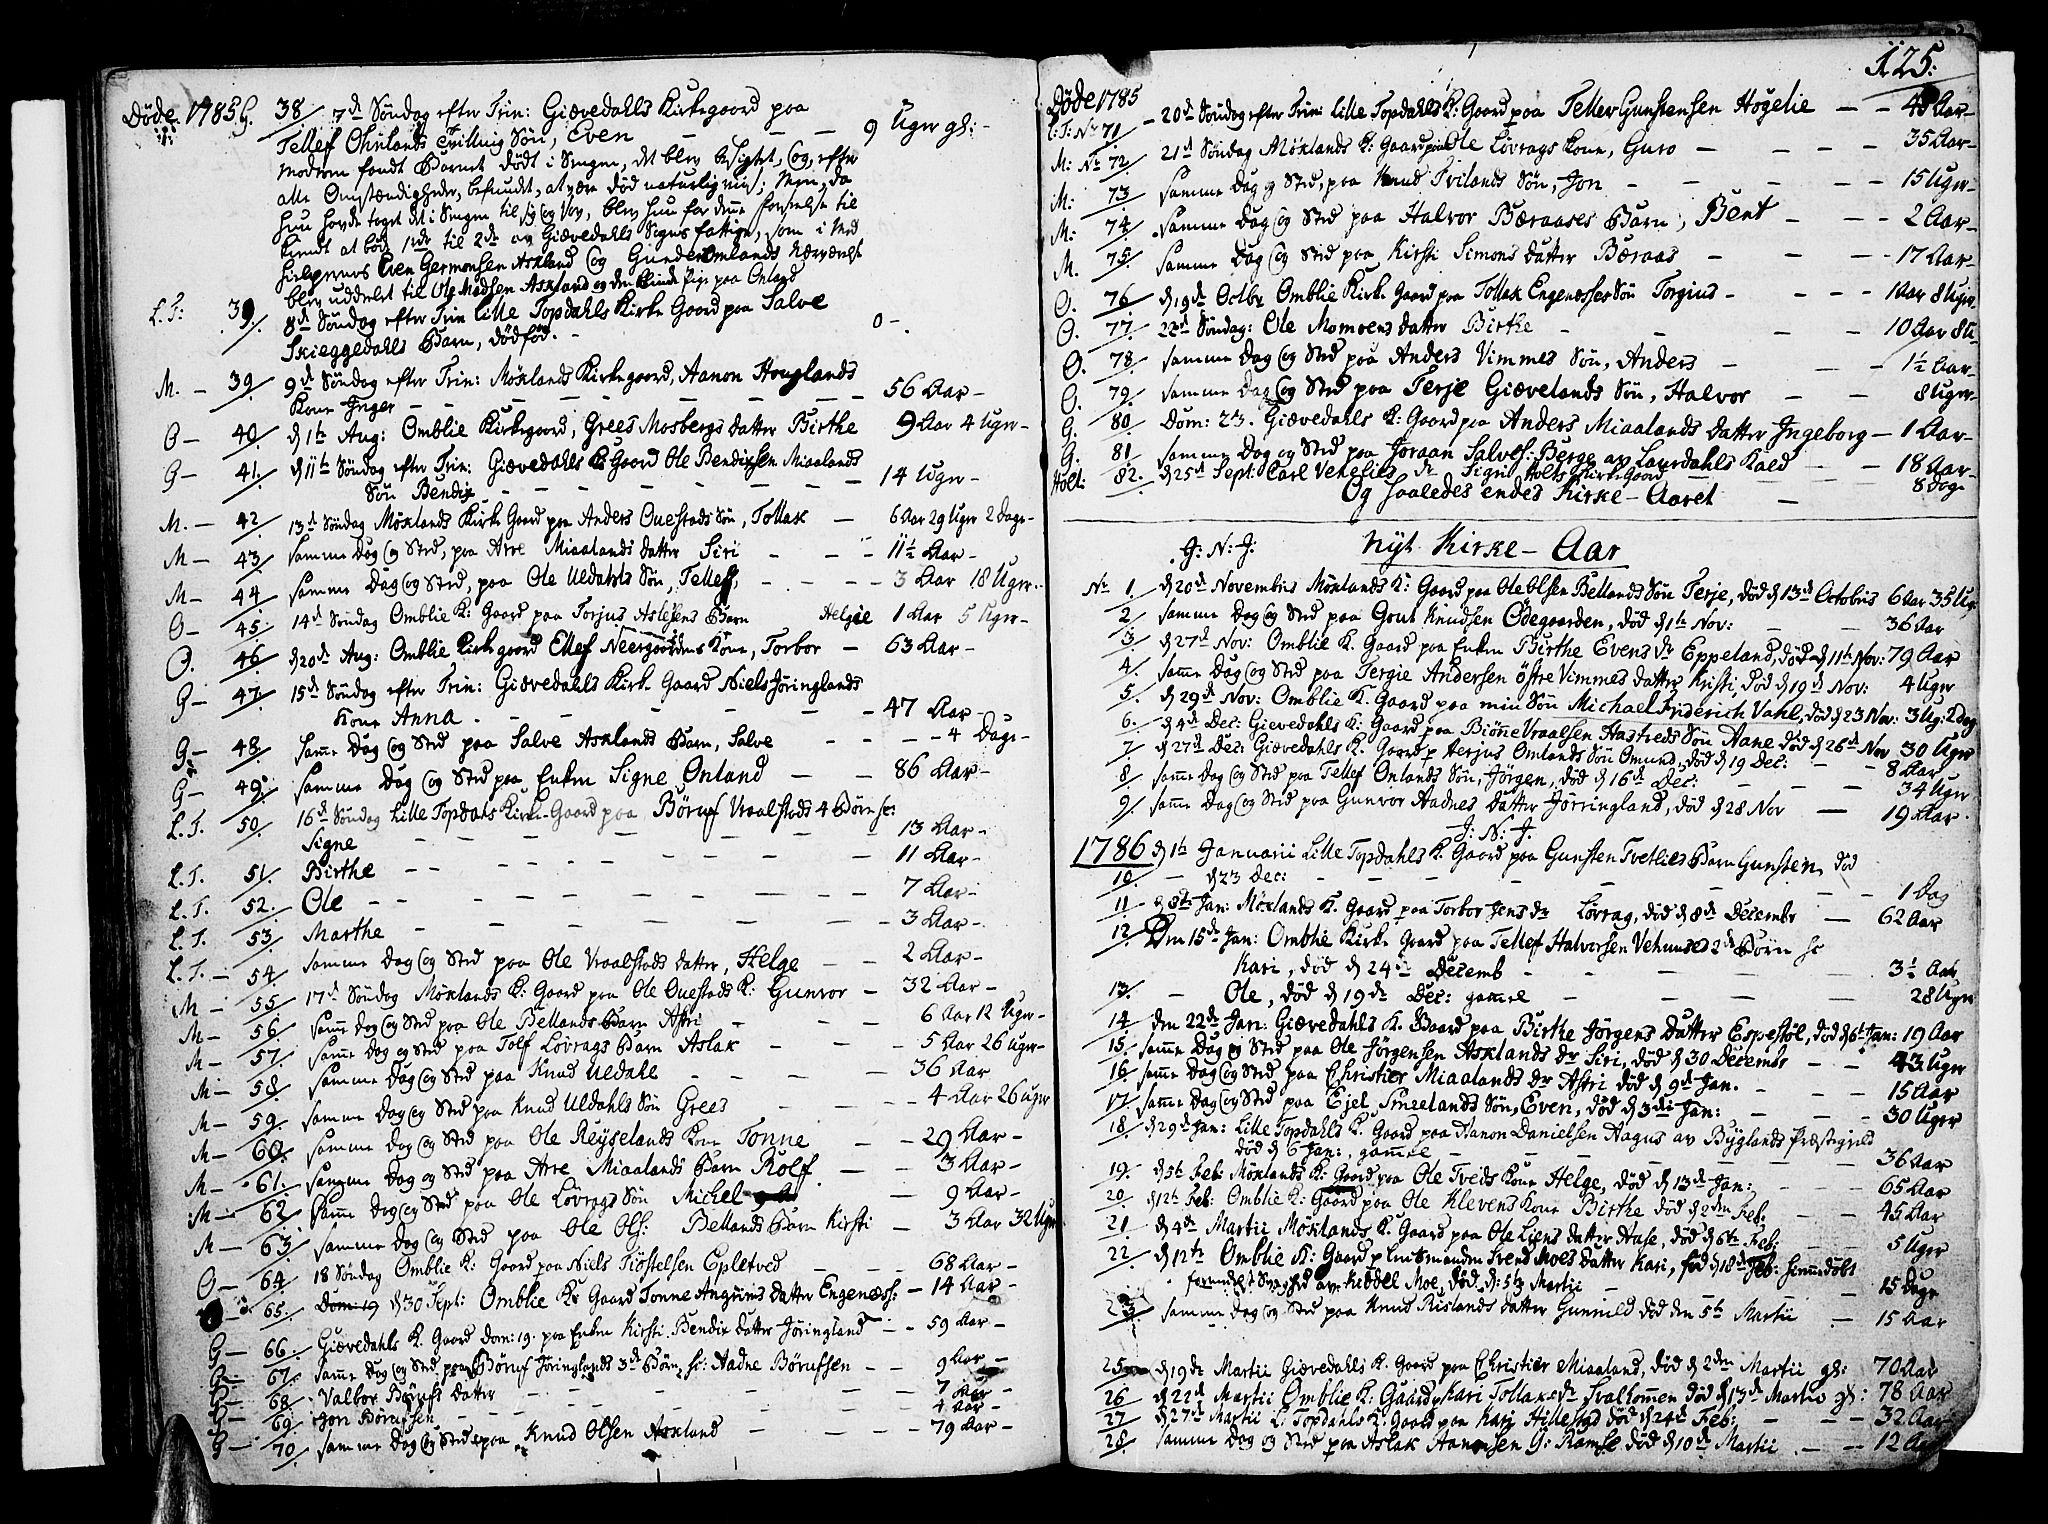 Døde 1785 G. 38/ 7d Søndag efter Trin: Giævedahls Kirkegaard paa
Tellef Ohnlands Tvilling Søn, Even — — — 9 Uger gl:
Modren fandt Barnet dødt i Sengen, det blev besigtet, og efter
alle Omstændigheder, befundet, at være død naturligviis; Men, da
hun hovde taget det i Sengen til sig og Vov, blev hun for denne forseelse til
kiendt at böde 1rdr til 2dr av Giævedahls Sogns fattige, som i Med
hielpernes Even Germonsen Askland og Gunder Omlands Nærværelse
blev uddeelet til Ole Madsen Askland og den blinde Pige paa Onland
L. T: 39/. 8d Søndag efter Trin Lille Topdahls Kirke Gaard paa Salve
Skieggedahls Barn, dødfød. — 0 -.
M. — 39/ 9d Søndag efter Trin: Möklands Kirkegaard, Aanon Houglands
Kone Inger — — — 56 Aar —
O — 40/. d 1te Aug: Omblie Kirkegaard, Grees Mosbergs datter Birthe 9 Aar 4 Uger-
G — 41/. d 11te Søndag efter Trin: Giævedahls K: Gaard Ole Bendixsen Miaalands
Søn Bendix — — — 14 Uger —
M. — 42/. 13d Søndag Möklands Kirke Gaard paa Anders Ouestads Søn, Tollak — 6 Aar 29 Uger 2 Dage-
M — 43/. samme Dag og Sted, paa Arre Miaalands datter Siri — — 11½ Aar —
M — 44/. samme Dag og Sted, paa Ole Uldahls Søn, Tellef, — — 3 Aar 18 Uger.
O — 45/. 14d Søndag Omblie K: Gaard paa Torjus Aslesens Barn Helgie 1 Aar 5 Uger-
O. 46/. d 20d Aug: Omblie Kirkegaard Ellef Neergaardens Kone, Torbor — 63 Aar —
G — 47/. 15d Søndag efter Trin: Giævedahls Kirke Gaard Niels Jöringlands
Kone Anna. — — — 47 Aar —
G — 48/. Samme Dag og Sted paa Salve Asklands Barn, Salve — — — 4 Dage-
G — 49/. samme Dag og Sted paa Enken Signe Onland — — 86 Aar —
L. T. 50/. 16d Søndag Lille Topdals Kirke-Gaard paa Böruf Vraalstads 4 Børn sc:
Signe — — — 13 Aar —
L. T. 51/. Birthe — — 11 Aar —
L. T. 52. Ole — — 7 Aar —
L. T. 53/ Marthe — — 3 Aar —
L. T. — 54/. samme Dag og Sted paa Ole Vraalstads datter, Helge — — 2 Aar —
M — 55/. 17d Søndag Möklands K: Gaard paa Ole Ouestads K: Gunvor — 32 Aar —
M — 56/. samme dag og Sted paa Ole Bellands Barn Astri — — 6 Aar 12 Uger-
M — 57/. samme Dag og Sted paa Tolf Lövrags Barn Aslak — — 5 Aar 26 Uger-
M — 58/. samme Dag og Sted paa Knud Uldahl — — 36 Aar
M — 59/. samme Dag og Sted paa Knud Uldahls Søn Grees — — 4 Aar 26 Uger
M — 60/. samme Dag og Sted paa Ole Reiselands Kone Tonne — — 29 Aar —
M — 61/. samme Dag og Sted paa Arre Miaalands Barn Rolf — — 3 Aar —
M — 62/. samme Dag og Sted paa Ole Lövrags Søn Michel — 9 Aar —
M — 63/. samme Dag og Sted paa Ole Ols: Bellands Barn Kirsti — 3 Aar 32 Uger.
O — 64/. 18 Søndag Omblie K: Gaard paa Niels Tiöstelsen Epletved — — 68 Aar —
65/. Dom: 19 d 30 Sept: Omblie K: Gaard Tonne Anguns Datter Engenæss: — 14 Aar —
G — 66/. Giævedahls K. Gaard Dom: 19. paa Enken Kirsti Bendix datter Jöringland — — 59 Aar —
G — 67/. samme Dag og Sted paa Böruf Jöringlands 3de Børn, sc: Aadne Börufsen — — 9 Aar —
G — 68/. Valbor Börufs datter — — 7 Aar —
G — 69/. Jon Börufsen — — 4 Aar —
G — 70/. samme Dag og Sted paa Knud Olsen Askland — — 79 Aar —
125.
Døde 1785
L: T: No 71/. — 20d Søndag efter Trin: Lille Topdahls K: Gaard paa Tellev Gunstensen Hogelie — — 48 Aar-
M: No 72/. 21d Søndag Möklands K: Gaard paa Ole Lövrags Kone, Guro — — 35 Aar-
M: 73/ samme Dag og Sted, paa Knud Tvilands Søn, Jon — — 15 Uger-
M: 74/. samme Dag og Sted paa Halvor Bæraases Barn, Bent — — 2 Aar-
M. 75/. samme Dag og Sted paa Kirsti Simons datter Bæraas — — 17 Aar-
O. 76/. d 19d Octbr Omblie Kirke Gaard paa Tollak Engenæsses Søn Torgius — — 1 Aar 8 Uger.
O. 77/. 22d Søndag: Ole Momoens datter Birthe — — 10 Aar 8 U.
O. 78/. samme Dag og Sted paa Anders Vimmes Søn, Anders — — 1½ Aar-
O. 79/. samme Dag og Sted paa Terje Giævelands Søn, Halvor — — 8 Uger-
G. 80/ Dom: 23. Giævedahls K: Gaard paa Anders Miaalands datter Ingeborg — 1 Aar-
G. 81/ samme Dag og Sted paa Joraan Salves: Berge av Laurdahls Kald — — 18 Aar-
Holt: 82./. d 25d Sept: Carl Vehelies dr Sigrit Holts Kirke Gaard — 8 Dage
Og saaledes endes Kirke-Aaret —
J: N: J. Nyt Kirke-Aar
No 1/. d 20d Novembris Möklands K: Gaard paa Ole Olsen Bellands Søn Terje, død d 13d Octobris 6 Aar 35 Ug:
2/ samme Dag og Sted paa Gout Knudsen Ödegaarden, død d 1te Nov: — 36 Aar
3/ d 27d Nov: Omblie K: Gaard paa Enken Birthe Evens dr Eppeland, død d 11te Nov: 79 Aar
4/. samme Dag og Sted paa Tergie Andersen östre Vimmes datter Kristi, død d 19d Nov: 4 Uger
5/. d 29d Nov: Omblie K. Gaard paa min Søn Michael Friderich Vahl, død d 23 Nov: 3 Ug: 2 dag
6./. d 4d Dec: Gievedahls K: Gaard paa Biörne Vraalsen Hastveds Søn Aane død d 26d Nov 30 Uger
7/ d 27d Dec: Giævedahls K. Gaard p Herjus Omlands Søn Omund, død d 19 Dec: — — 8 Aar
8/ samme Dag og Sted paa Tellef Onlands Søn, Jörgen, død d 16d Dec: — 34 Uger
9/ samme Dag og Sted paa Gunvor Aadnes datter Jörringland, død d 28 Nov — 19 Aar.
J: N: J.
1786 d 1te Januarii Lille Topdahls K: Gaard paa Gunsten Tvetlies Barn Gunsten, død
10/. — d 23 Dec: — — 1 Dag
11/. d 8te Jan: Möklands K. Gaard paa Torbor Jens dr Lövrag, død d 8d Decembr — 62 Aar
12/. Den 15de Jan: Omblie Kirke Gaard paa Tellef Halvorsen Vehuuses 2de Børn sc
Kari, død d 24d Decemb — — 3½ Aar
13/. — Ole, død d 19de Dec: gamel — 28 Uger
14/. den 22de Jan: Giævedahls K: Gaard paa Birthe Jörgens Datter Espestöl, død d 6te Jan: 19 Aar
15/. samme Dag og Sted paa Ole Jörgensen Asklands dr Siri, død d 30 Decembr — — 43 Uger
16/. samme Dag og Sted paa Christier Miaalands dr Astri død d 9d Jan. — 15 Aar
17/. samme Dag og Sted paa Ejel Smeelands Søn, Even, død d 3die Jan: — — 30 Uger
18/. d 29d Jan: Lille Topdahls K. Gaard paa Aanon Danielsen Aagus av Byglands Præstegield
død d 6 Jan:, gamel — — 36 Aar
19/. d 5te Feb: Möklands K: Gaard paa Ole Tveids Kone Helge, død d 13d Jan: — 65 Aar
20/ d 12te Feb: Omblie K: Gaard paa Ole Klevens Kone Birthe død d 2den Feb: — 45 Aar
21/ d 4d Martii Möklands K: Gaard paa Ole Liens datter Aase, død d 6te Feb: — 5 Uger
22/ d 12te Omblie K: Gaard p Svend Moes datter Kari, fød d 18d Feb: hiemmedøbt
Svaghed av Kiddel Moe, død, d: 5te Martii — 15 Dage
23/ samme Dag og Sted paa Knud Rislands datter Gunnild død den 5te Martii — 15 Aar
25 d 19de Martii Giævedahls K: Gaard paa Christier Miaaland, død d 2den Martii gl: 70 Aar
26/ d 22d Martii Omblie K: Gaard p Kari Tollaks dr Tvalhommen død d 13de Martii gl: 78 Aar
27/ d 27d Martii L: Topdahls K: Gaard paa Kari Hillestad død d 24d Feb: — — 32 Aar
28/. samme Dag og Sted paa Aslak Aanonsen G: Ramse død d 10d Martii — — 12 Aar